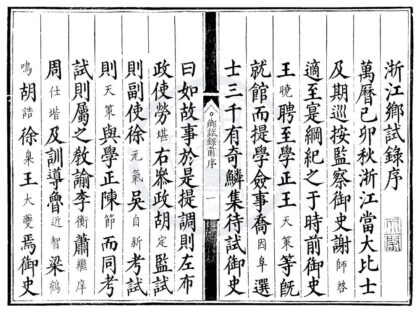 浙江鄉試録序
萬曆己卯秋浙江當大比士
及期巡按監察御史謝師啓
適至寔綱紀之于時前御史
王曉聘至學正王天策等旣
就館而提學僉事喬因阜選
士三千有奇鱗集待試御史
鄉試錄前序
一
曰如故事於是提調則左布
政使勞堪右叅政胡定監試
則副使徐元氣吳自新考試
則天策與學正陳節而同考
試則屬之教諭李衡蕭繼序
周仕堦及訓導曾近智梁鶴
鳴胡誥徐臬王大夔焉御史